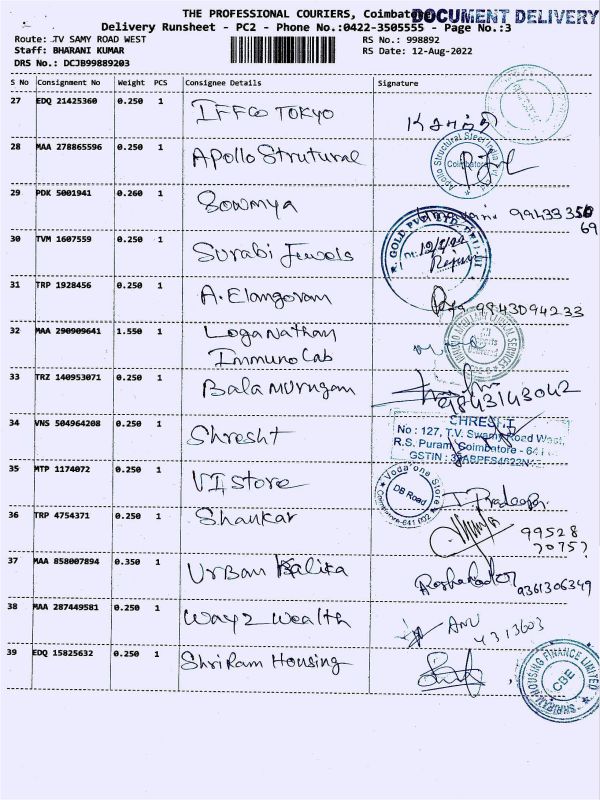 THE PROFESSIONAL COURIERS, Coimbat
DOCUMENT DELIVERY
Delivery Runsheet - PC2 - Phone No.:0422-3505555 - Page No.:3
Route: .TV SAMY ROAD WEST
RS No.: 998892
Staff: BHARANI KUMAR
RS Date: 12-Aug-2022
DRS No.: DCJB99889203
S No Consignment No Weight PCS Consignee Details Signature
27 EDQ 21425360 0.250 1 IFFCO TOKYO
28 MAA 278865596 0.250 1 Apollo Strutural
Apollo Structural Steel India Pvt Ltd
Coimbatore
29 PDK 5001941 0.260 1 Sowmya
99433 350
69
30 TVM 1607559 0.250 1 Surabi Jewels
GOLD PVT LTD.
12/8/22
31 TRP 1928456 0.250 1 A. Elangovan
9943094233
32 MAA 290909641 1.550 1 Loganathan
Immuno Lab
33 TRZ 140953071 0.250 1 Bala murugan
9843143042
34 VNS 504964208 0.250 1 Shresht
SHRESHT
No : 127, T.V. Swamy Road West,
R.S. Puram, Coimbatore - 641
GSTIN :
35 MTP 1174072 0.250 1 VI store
Vodafone Store
DB Road
Coimbatore-641 002
T. Pradeep
36 TRP 4754371 0.250 1 Shankar
99528
70757
37 MAA 858007894 0.350 1 Urban Kalika
9361306349
38 MAA 287449581 0.250 1 Way 2 wealth
ANU
4313603
39 EDQ 15825632 0.250 1 Shri Ram Housing
SHRIRAM HOUSING FINANCE LIMITED
CBE